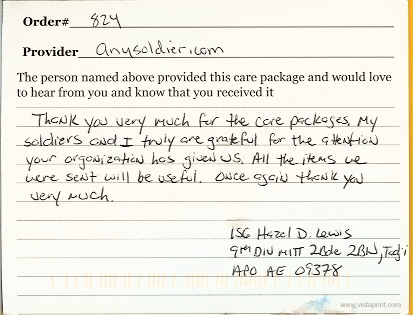 Order# 824
Provider anysoldier.com
The person named above provided this care package and would love
to hear from you and know that you received it
Thank you very much for the care packages. My
soldiers and I truly are grateful for the attention
your organization has given us. All the items we
were sent will be useful. Once again thank you
very much.
1SG Hazel D. Lewis
9th DIV MITT 2Bde 2BN, Taji
APO AE 09378
www.vistaprint.com